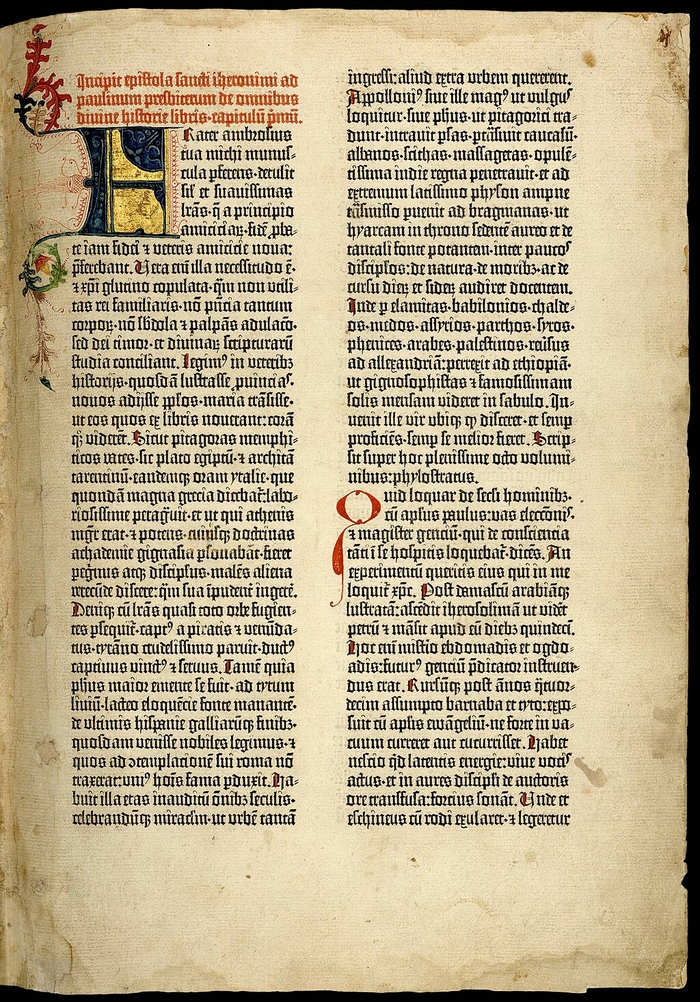 Incipit epistola sancti iheronimi ad
paulinum presbiterum de omnibus
divine historie libris·capitulū pmū.
Frater ambrosius
tua michi munus-
cula pferens·detulit
sił et suauissimas
lrās·q̄ a principio
amicicia⁊·fidē pba-
te iam fidei ⁊ veteris amicicie noua:
pferebant. Uera enī illa necessitudo ē·
⁊ xpi glutino copulata·q̄m non vtili-
tas rei familiaris·nō pn̄cia tantum
corporꝫ·nō sb̄dola ⁊ palpās adulacō·
sed dei timor·et diuinaꝝ scripturarū
studia conciliant. Legimꝰ in veteribꝫ
historijs·quosdā lustrasse ꝓuincias·
nouos adijsse pplos·maria trāsisse·
ut eos quos ex libris nouerant: corā
qꝫ viderēt. Sicut pitagoras memphi-
ticos vates·sic plato egiptū·⁊ architā
tarentinū·eandemqꝫ oram ytalie·que
quondā magna grecia dicebat̄: labo-
riosissime peragᵘit·et ut qui athenis
mgr̄ erat·⁊ potens·cuiusqꝫ doctrinas
achademie gignasia psonabāt·fieret
pegrinus atqꝫ discipłus·malēs aliena
verecūde discere: q̄m sua īpudent ingerē.
Deniqꝫ cū lrās quasi toto orbe fugien-
tes psequit̄·captꝰ a piratis ⁊ venūda-
tus·tyrāno crudelissimo paruit·ductꝰ
captiuus vinctꝰ ⁊ seruus. Tamē quia
phūs maior emente se fuit·ad tytum
liuiū·lacteo eloquēcie fonte manantē·
de vltimis hispanie galliarūqꝫ finibꝫ·
quosdam venisse nobiles legimus·⁊
quos ad ꝯtemplacionē sui roma nō
traxerat: vniꝰ hoīs fama pduxit. Ha-
buit illa etas inauditū oībꝫ seculis·
celebrandūqꝫ miraclm·ut vrbē tantā
ingressi: aliud extra vrbem quererent.
Appolloniꝰ siue ille magꝰ ut vulgꝰ
loquitur·siue phūs·ut pitagorici tra-
dunt·intrauit psas·ptrāsiuit caucasū·
albanos·scithas·massagetas·opulē-
tissima indie regna penetrauit·et ad
extremum latissimo physon ampne
trāsmisso puenit ad bragmanas·ut
hyarcam in throno sedentē aureo et de
tantali fonte potantem·inter paucos
discipłos: de natura·de moribꝫ·ac de
cursu dieꝝ et sideꝝ audiret docentem.
Inde p elamitas·babilonios·chalde-
os·medos·assyrios·parthos·syros·
phenices·arabes·palestinos·reuersus
ad allexandriā: perrexit ad ethiopiā·
ut gignosophistas ⁊ famosissimam
solis mensam videret in sabulo. In-
uenit ille vir vbiqꝫ qd disceret·et semp
proficiēs·semp se melior fieret. Scrip-
sit super hoc plenissime octo volumi-
nibus: phylostratus.
Quid loquar de secli hominibꝫ·
cū apłus paulus: vas elecconis·
⁊ magister gentiū·qui de consciencia
tāti ī se hospitis loquebat̄·dicēs. An
experimentū queritis eius qui in me
loquit̄ xpc̄. Post damascū arabiāqꝫ
lustratā: ascēdit iherosolimā ut videt̄
petrū ⁊ māsit apud eū diebꝫ quindeci.
Hoc enī mistio ebdomadis et ogdo-
adis: futurꝰ gentiū pdicator instruen-
dus erat. Rursūqꝫ post ānos q̄tuor-
decim assumpto barnaba et tyto: expo-
suit cū apłis ewāgeliū·ne forte in va-
cuum curreret aut cucurrisset. Habet
nescio qd latentis energie: viue vocis
actus·et in aures discipli de auctoris
ore transfusa: forcius sonat. Unde et
eschineus cū rodi exularet·⁊ legeretur